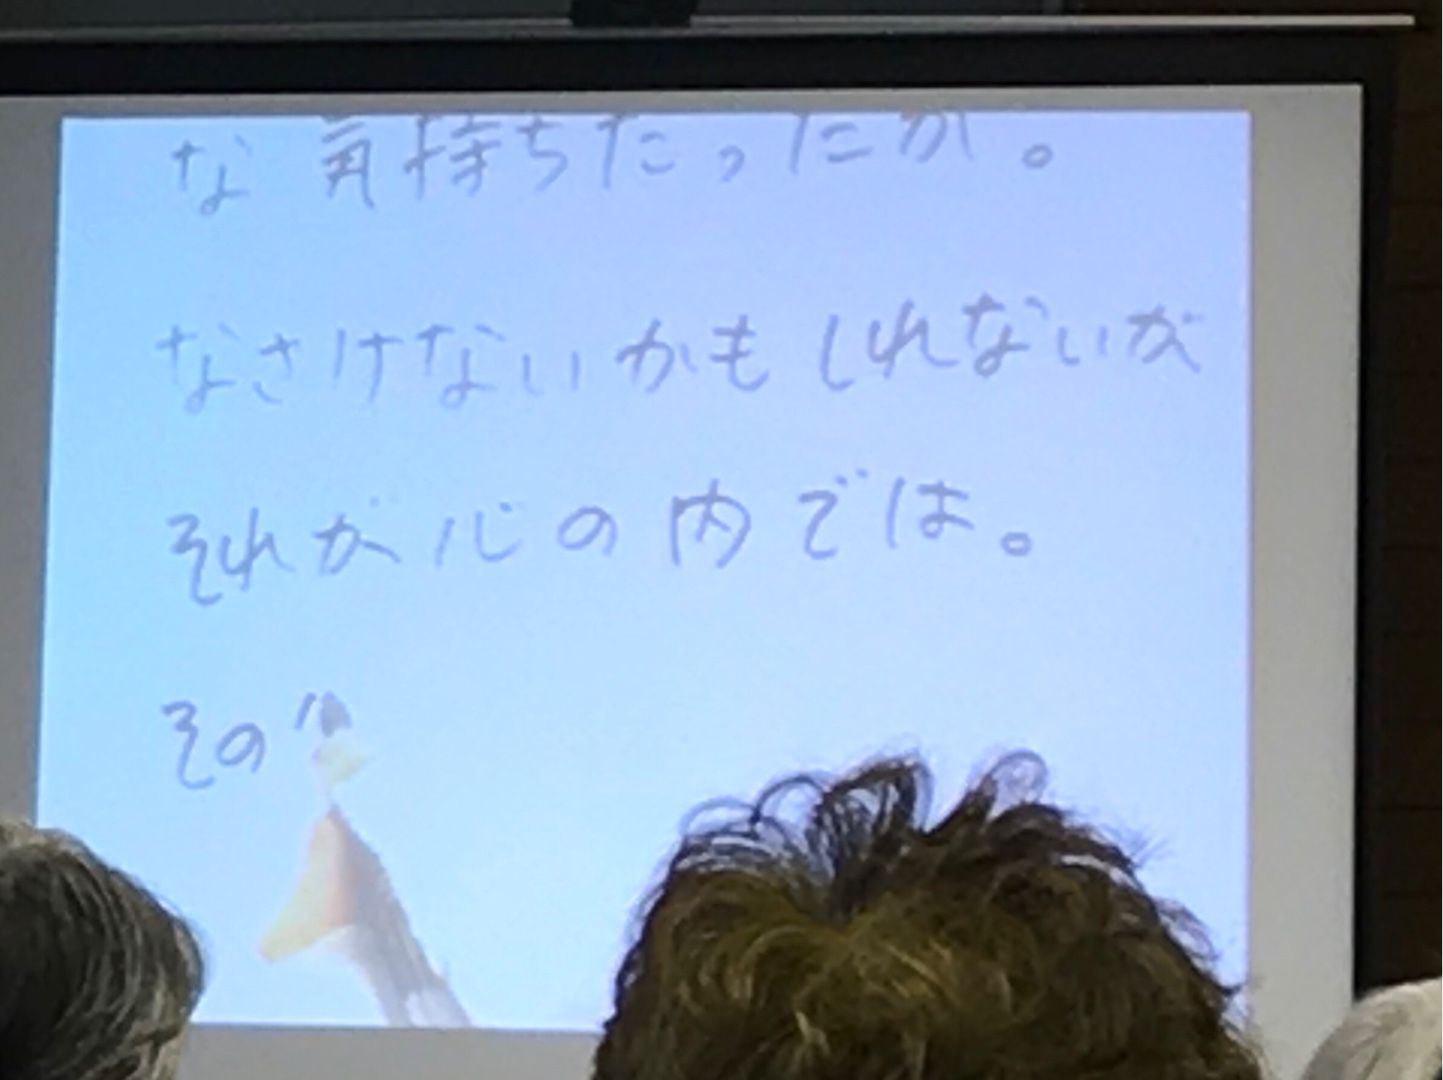 な気持ちだったか。
なさけないかもしれないが
それが心の内では。
その